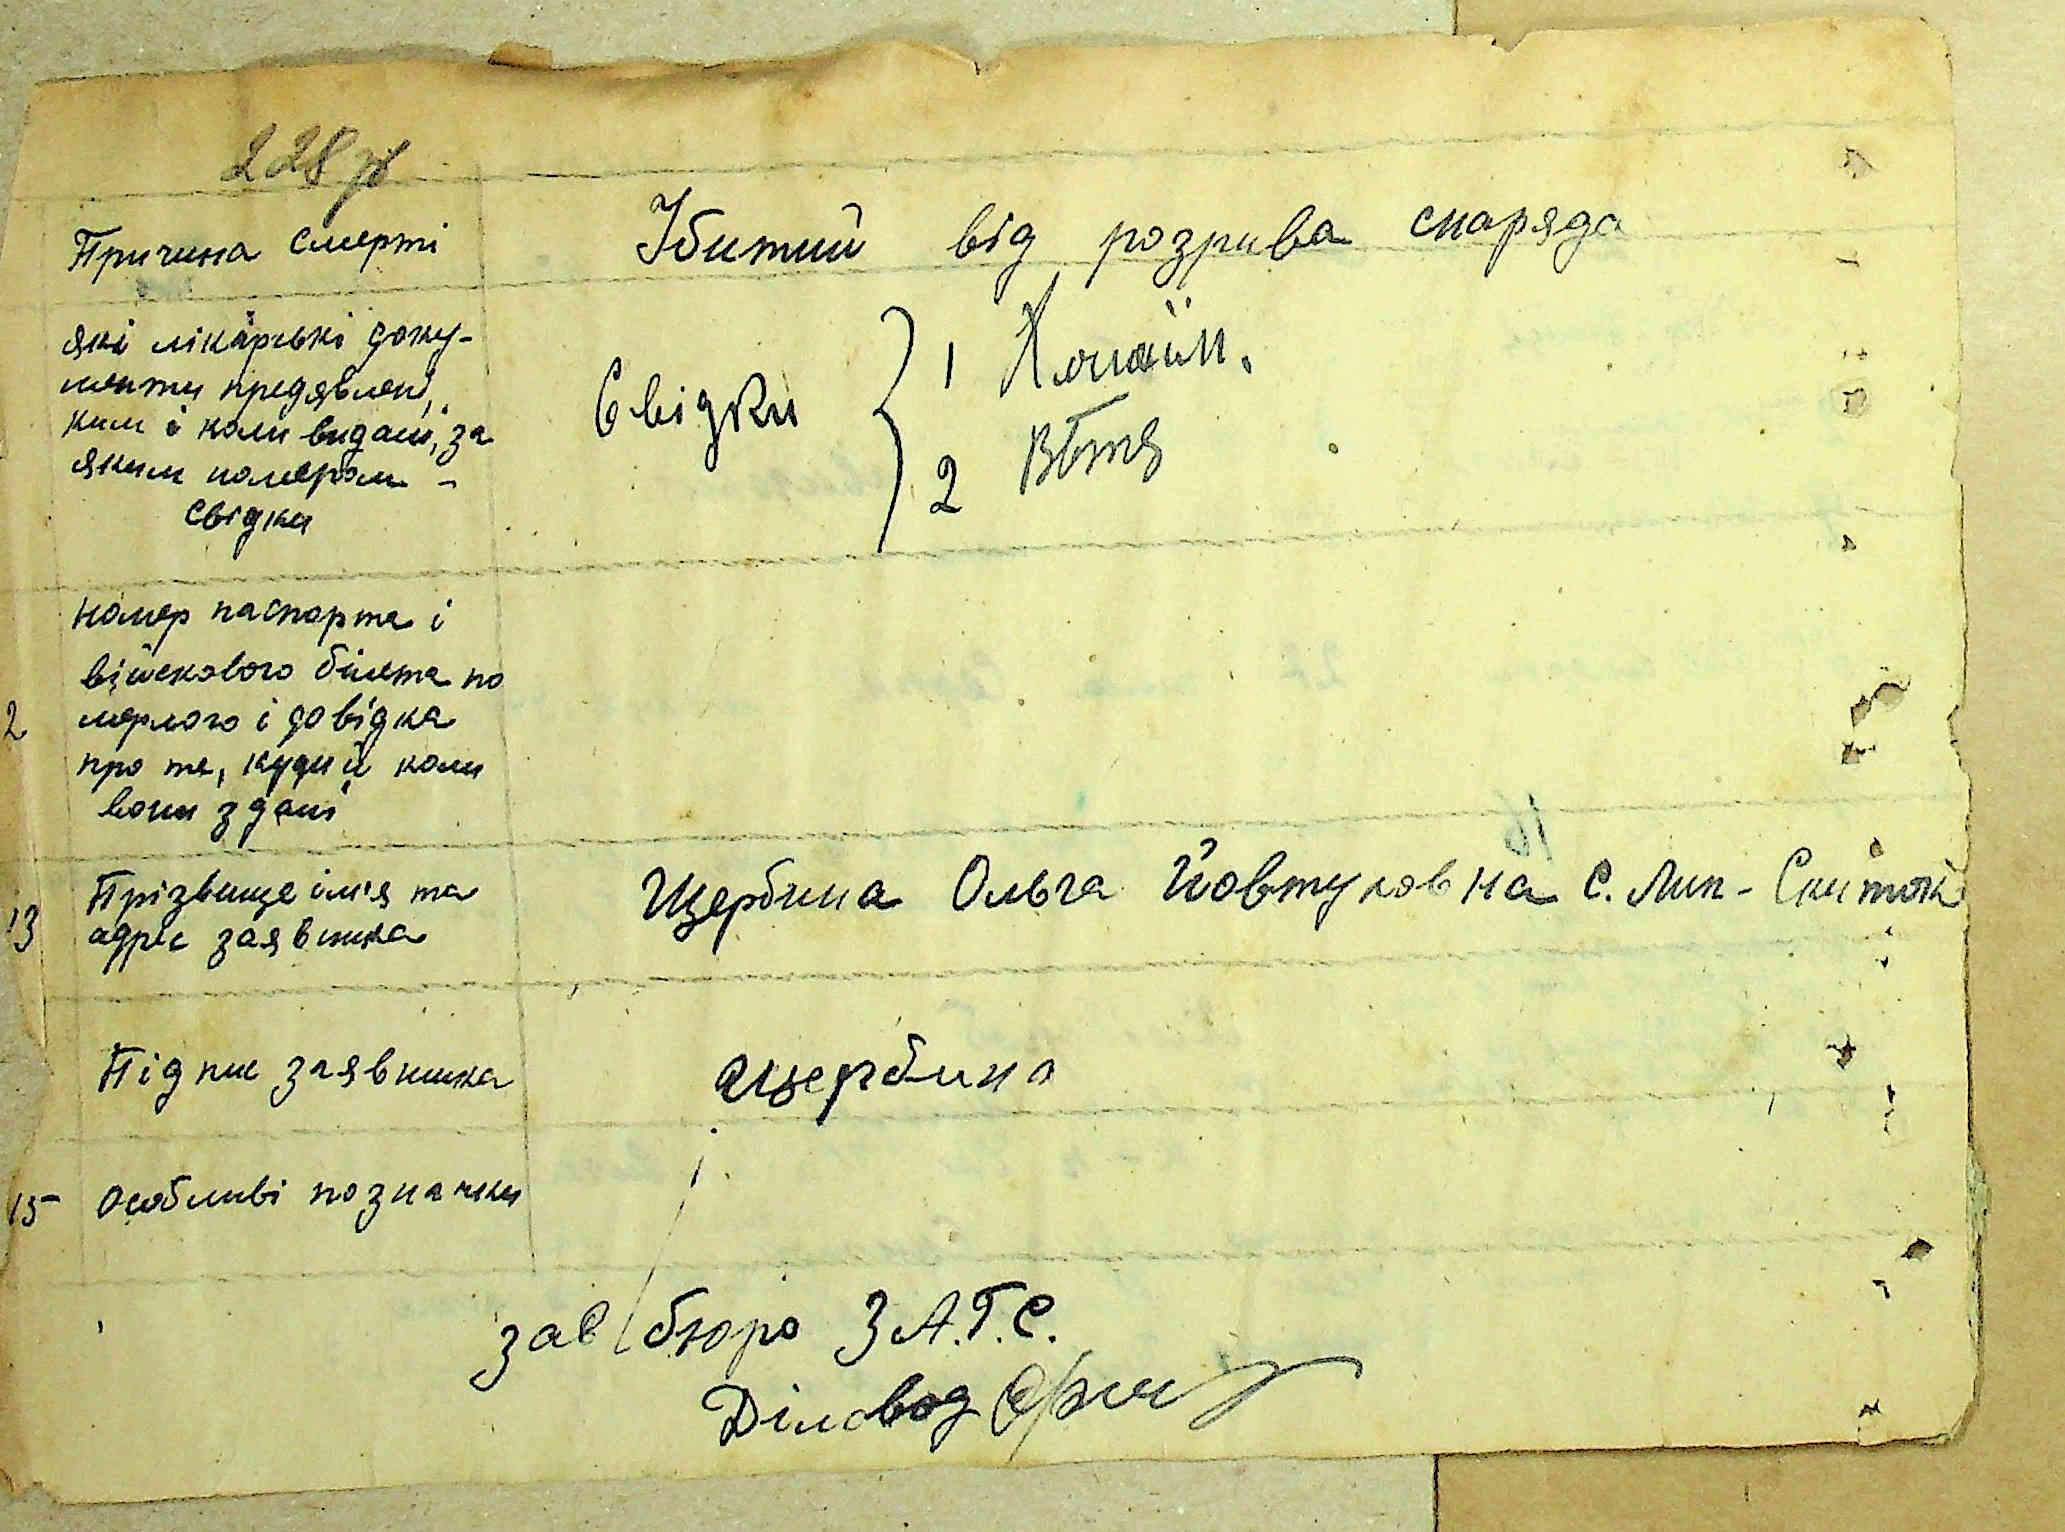 228
Причина смерті
Убитий від розрива снаряда
які лікарські доку-
менти предявлені,
ким і коли видані, за
яким номером -
свідки
Свідки
1
2
номер паспорта і
війскового білета по
2 мерлого і довідка
про те, куди й коли
вони здані
13 Прізвище імя та
адрес заявника
Щербина Ольга Йовтуховна с. Лип-Скитки
16
Підпис заявника
щербина
15 особливі позначки
зав бюро З А.Г.С.
Діловод